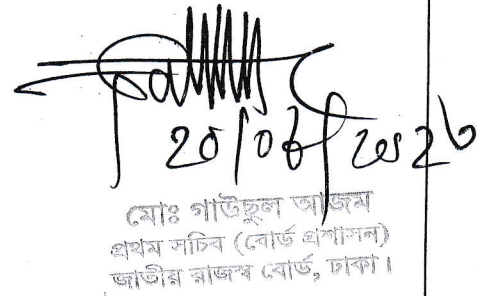 মোঃ গাউছুল আজম
প্রথম সচিব (বোর্ড প্রশাসন)
জাতীয় রাজস্ব বোর্ড, ঢাকা।